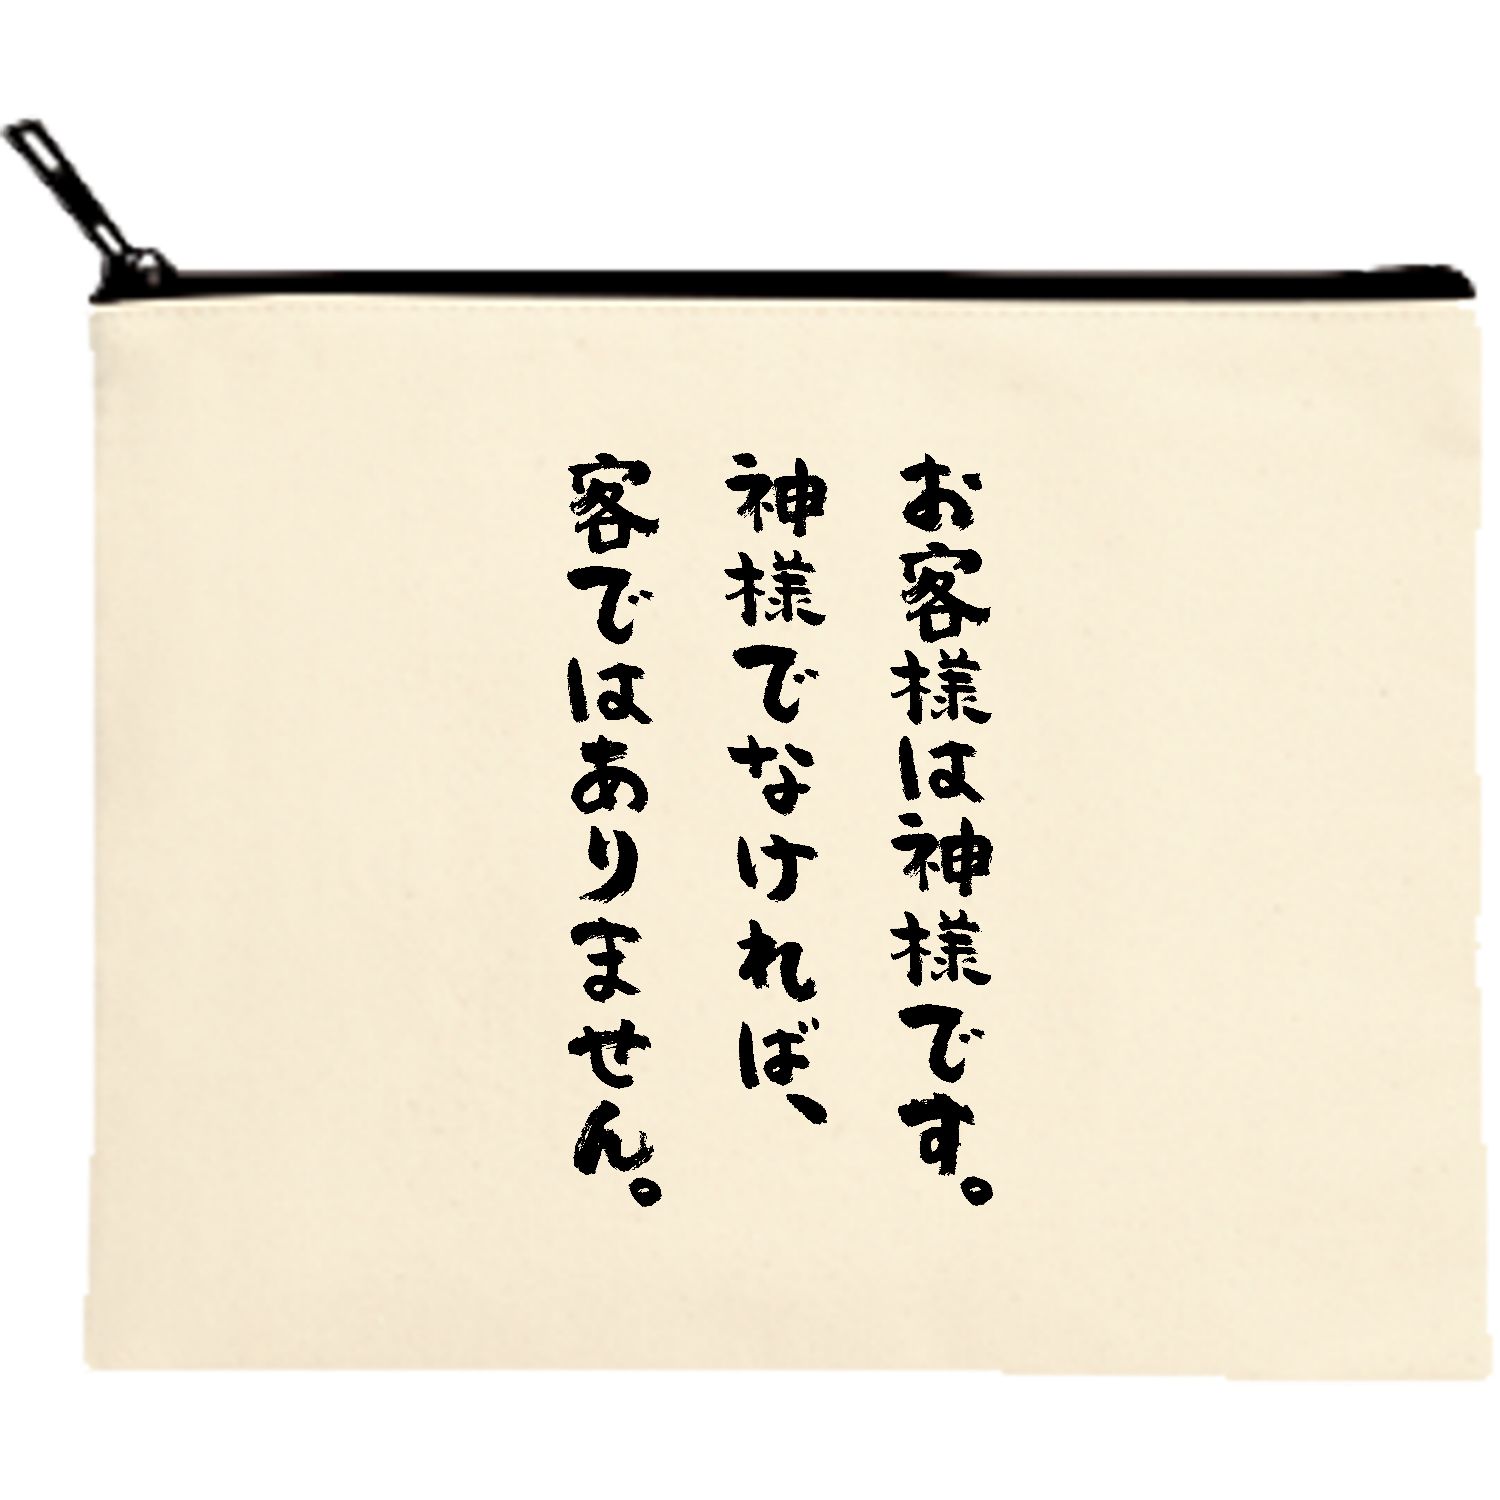 お客様は神様です。
神様でなければ、
客ではありません。